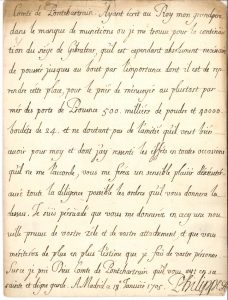 Comte de Pontchartrain. Ayant écrit au Roy mon grand pere
dans le manque de munitions ou je me trouve pour la continuation
du siege de Gibraltar quil est cependant absolument necessaire
de pousser jusques au bout par l'importance dont il est de re-
prendre cette place, pour le prier de m'envoyer au plustost par
mer des ports de Provence 500. milliers de poudre et 40000
boulets de 24. et ne doutant pas de l'amitié quil veut bien
avoir pour moy et dont j'ay ressenti les effets en toutes occasions
quil ne me l'accorde, vous me ferés un sensible plaisir d'executer
avec toute la diligence possible les ordres quil vous donnera la
dessus. Je suis persuadé que vous me donnerés en cecy une nou-
velle preuve de votre zele et de votre attachement, et que vous
meriterés de plus en plus l'estime que je fais de votre personne.
Sur ce je prie Dieu Comte de Pontchartrain quil vous ayt en sa
sainte et digne garde. A Madrid ce 18 Janvier 1705. Philippe